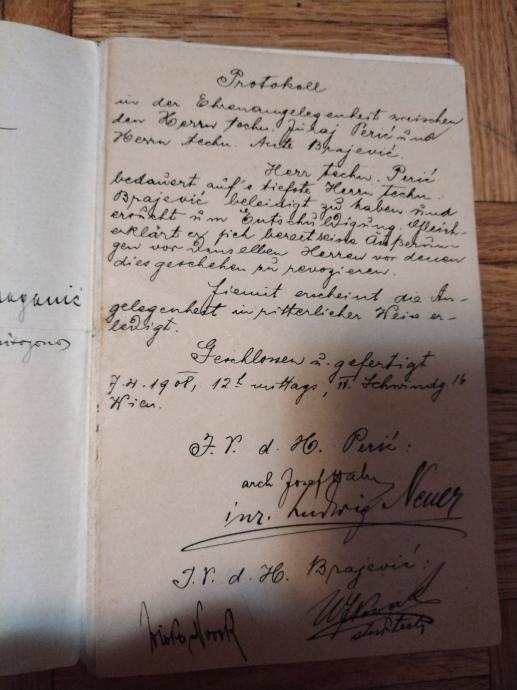 Protokoll
in der Ehrenangelegenheit zwischen
den Herrn techn. Juraj Perić und
Herrn techn. Ante Brajević.
Herr techn. Perić
bedauert auf's tiefste Herrn techn.
Brajević beleidigt zu haben und
ersucht um Entschuldigung. Gleich-
erklärt er sich bereit seine Äußerun-
gen vor denselben Herren vor denen
dies geschehen zu revozieren.
Hiemit erscheint die An-
gelegenheit in ritterlicher Weise er-
ledigt.
Geschlossen u. gefertigt
1908, 12h mittags, Schwindg 16
Wien.
I. V. d. H. Perić:
arch Josef
ing. Ludwig Neuer
I. V. d. H. Brajević:
Novak